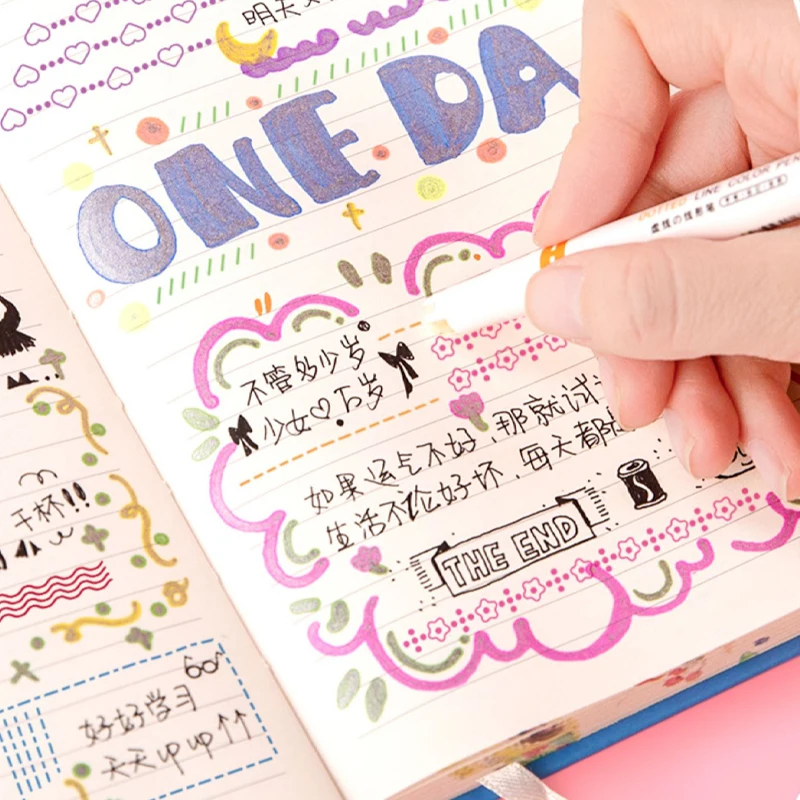 明天
ONE DA
DOTTED LINE COLOR PEN
不管多少岁
少女♡万岁
如果运气不好，那就试
生活不论好坏，每天都
THE END
干杯!!
好好学习
天天up up↑↑